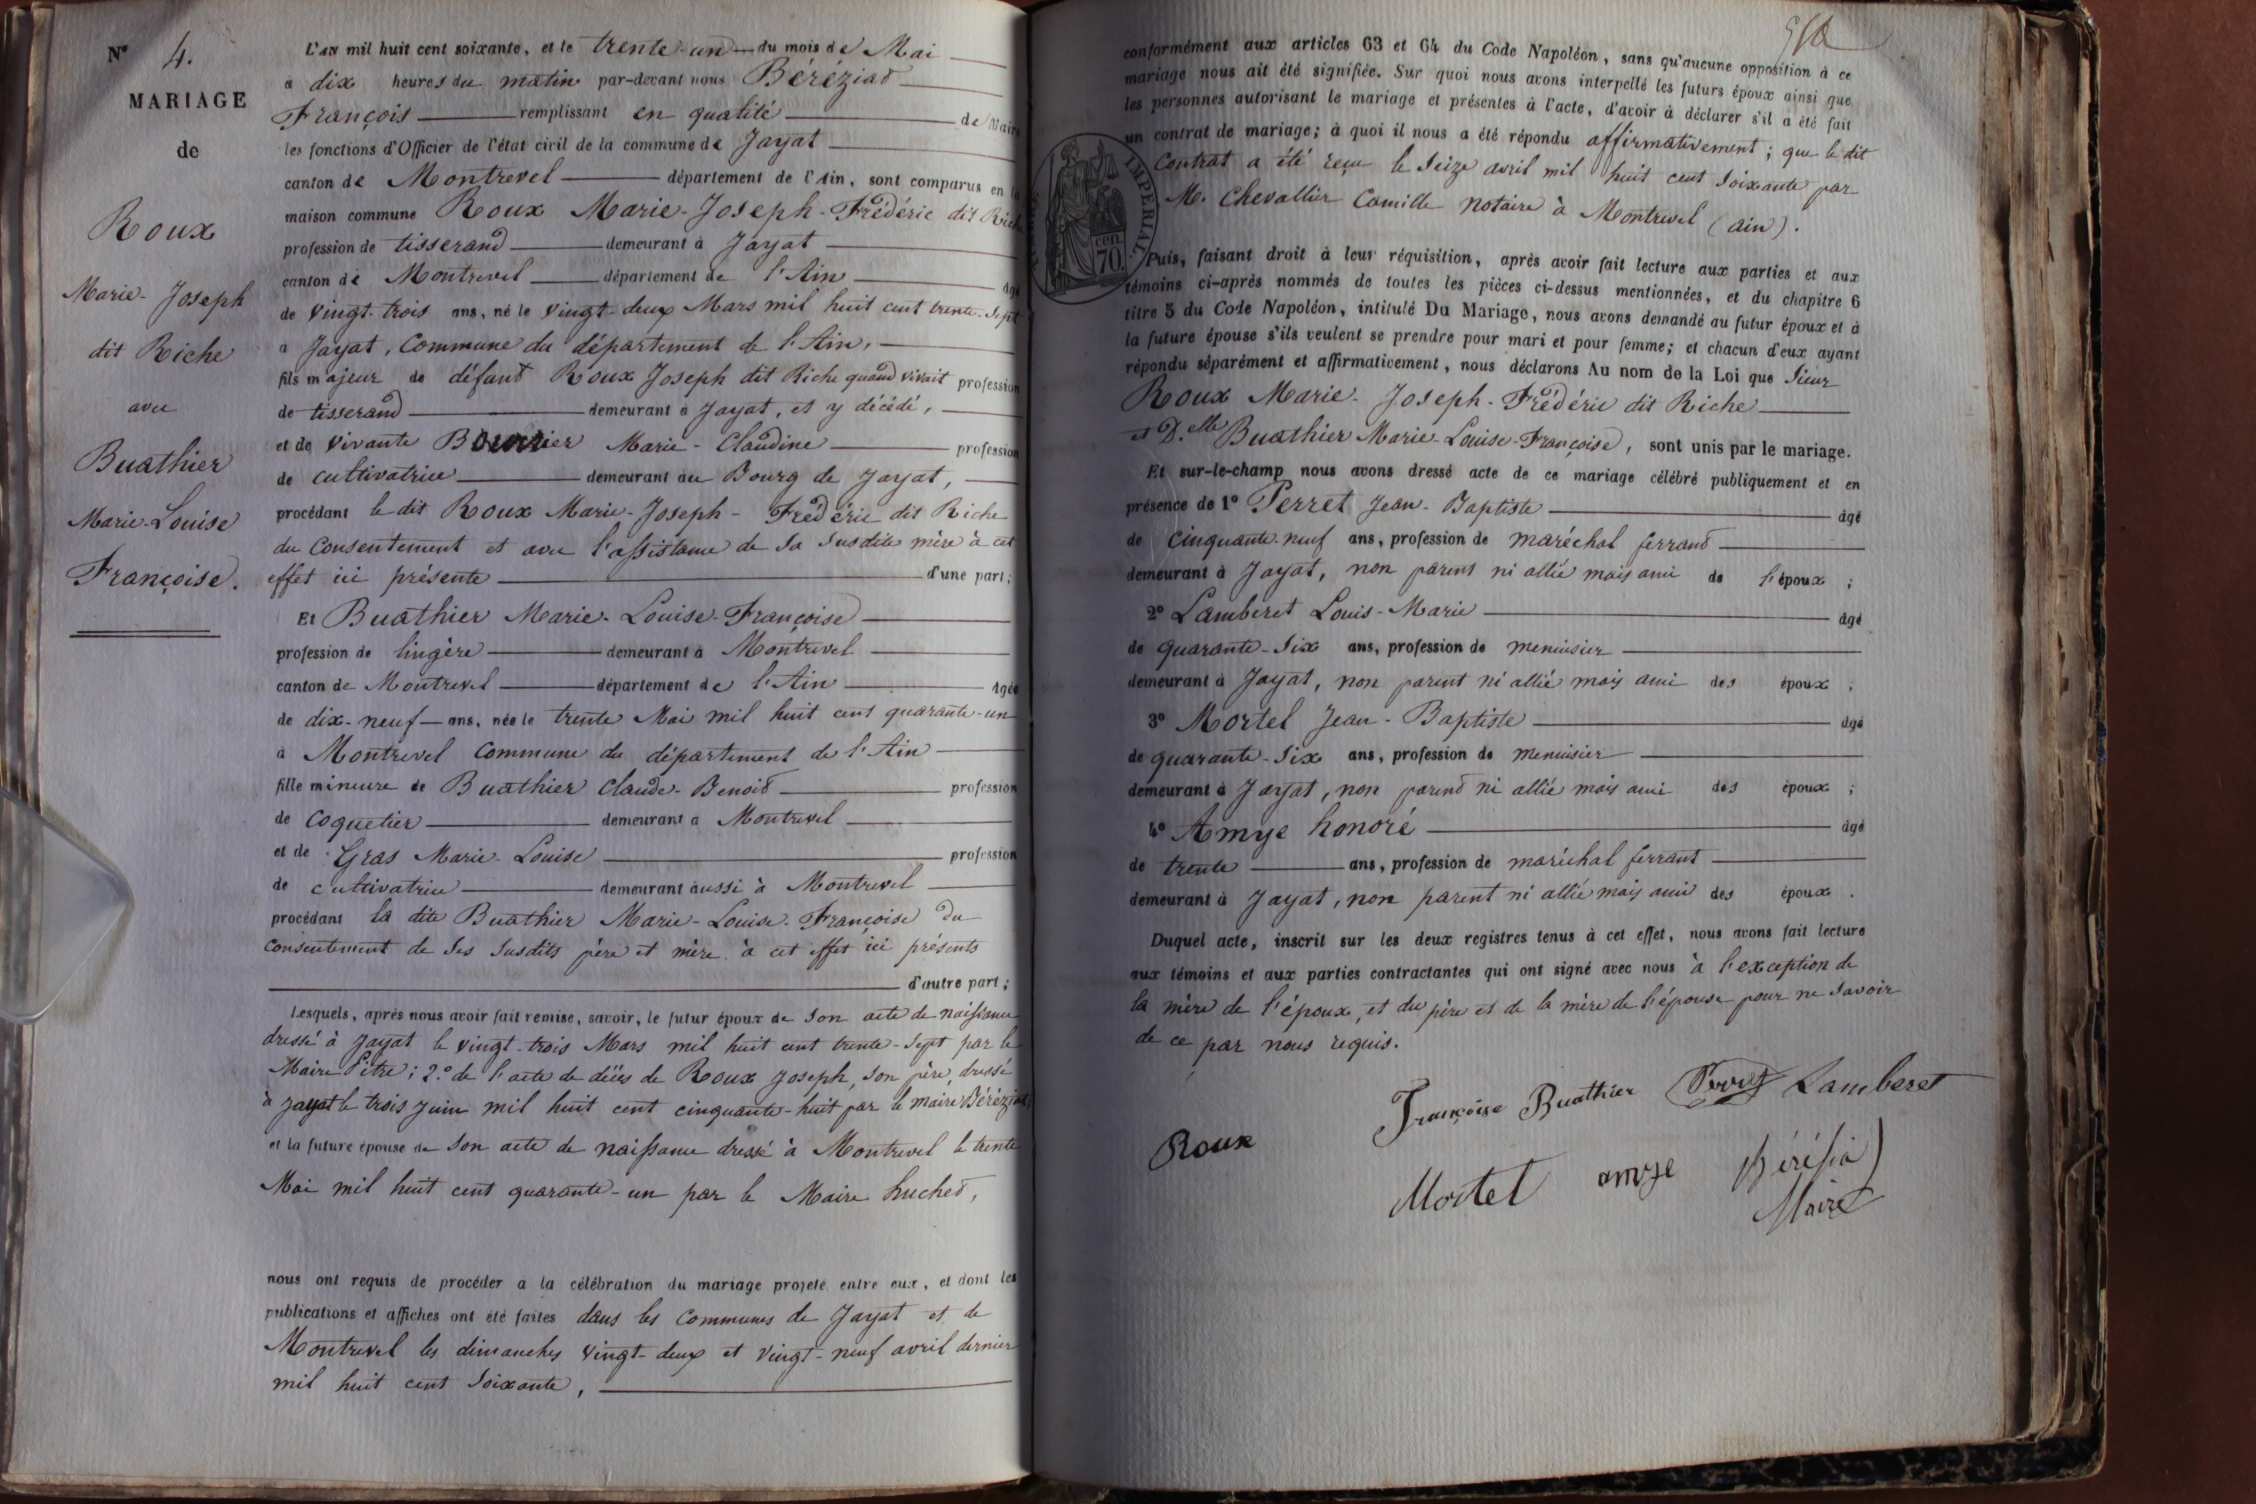 N° 4.
MARIAGE
de
Roux
Marie-Joseph
dit Riche
avec
Buathier
Marie-Louise
Françoise.
L'an mil huit cent soixante, et le trente-un du mois de Mai
a dix heures du matin par-devant nous Béréziat
François remplissant en qualité de Maire
les fonctions d'Officier de l'état civil de la commune de Jayat
canton de Montrevel département de l'Ain, sont comparus en la
maison commune Roux Marie-Joseph-Frédéric dit Riche
profession de tisserand demeurant à Jayat
canton de Montrevel département de l'Ain âgé
de vingt-trois ans, né le vingt-deux Mars mil huit cent trente-sept
a Jayat, Commune du département de l'Ain,
fils majeur de défunt Roux Joseph dit Riche quand vivait profession
de tisserand demeurant à Jayat, et y décédé,
et de vivante Marie-Claudine profession
de cultivatrice demeurant au Bourg de Jayat,
procédant le dit Roux Marie-Joseph-Frédéric dit Riche
du consentement et avec l'assistance de sa susdite mère à cet
effet ici présente d'une part;
Et Buathier Marie-Louise-Françoise
profession de lingère demeurant à Montrevel
canton de Montrevel département de l'Ain âgée
de dix-neuf ans, née le trente Mai mil huit cent quarante-un
a Montrevel Commune du département de l'Ain
fille mineure de Buathier Claude-Benoit profession
de coquetier demeurant a Montrevel
et de Gras Marie-Louise profession
de cultivatrice demeurant aussi à Montrevel
procédant la dite Buathier Marie-Louise-Françoise du
consentement de ses susdits père et mère à cet effet ici présents
d'autre part;
Lesquels, après nous avoir fait remise, savoir, le futur époux de son acte de naissance
dressé à Jayat le vingt-trois Mars mil huit cent trente-sept par le
Maire Pitre; 2.° de l'acte de décès de Roux Joseph, son père, dressé
à Jayat le trois Juin mil huit cent cinquante-huit par le maire Béréziat;
et la future épouse de son acte de naissance dressé à Montrevel le trente
Mai mil huit cent quarante-un par le Maire huchet,
nous ont requis de procéder a la célébration du mariage projeté entre eux, et dont les
publications et affiches ont été faites dans les communes de Jayat et de
Montrevel les dimanches vingt-deux et vingt-neuf avril dernier
mil huit cent soixante,
conformément aux articles 63 et 64 du Code Napoléon, sans qu'aucune opposition à ce
mariage nous ait été signifiée. Sur quoi nous avons interpellé les futurs époux ainsi que
les personnes autorisant le mariage et présentes à l'acte, d'avoir à déclarer s'il a été fait
un contrat de mariage; à quoi il nous a été répondu affirmativement; que le dit
Contrat a été reçu le Seize avril mil huit cent soixante par
M. Chevallier Camille notaire à Montrevel (ain).
IMPERIAL.
cen.
70.
Puis, faisant droit à leur réquisition, après avoir fait lecture aux parties et aux
témoins ci-après nommés de toutes les pièces ci-dessus mentionnées, et du chapitre 6
titre 5 du Code Napoléon, intitulé Du Mariage, nous avons demandé au futur époux et à
la future épouse s'ils veulent se prendre pour mari et pour femme; et chacun d'eux ayant
répondu séparément et affirmativement, nous déclarons Au nom de la Loi que Sieur
Roux Marie-Joseph-Frédéric dit Riche
et D.elle Buathier Marie-Louise-Françoise, sont unis par le mariage.
Et sur-le-champ nous avons dressé acte de ce mariage célébré publiquement et en
présence de 1° Perret Jean-Baptiste âgé
de cinquante-neuf ans, profession de maréchal ferrand
demeurant à Jayat, non parent ni allié mais ami de l'époux;
2° Lamberet Louis-Marie âgé
de quarante-six ans, profession de menuisier
demeurant à Jayat, non parent ni allié mais ami des époux;
3° Mortel Jean-Baptiste âgé
de quarante-six ans, profession de menuisier
demeurant à Jayat, non parent ni allié mais ami des époux;
4° Amye honoré âgé
de trente ans, profession de maréchal ferrant
demeurant à Jayat, non parent ni allié mais ami des époux.
Duquel acte, inscrit sur les deux registres tenus à cet effet, nous avons fait lecture
aux témoins et aux parties contractantes qui ont signé avec nous à l'exception de
la mère de l'époux, et du père et de la mère de l'épouse pour ne savoir
de ce par nous requis.
Françoise Buathier Perret Lamberet
Roux
Mortel amye Bérésia
Maire